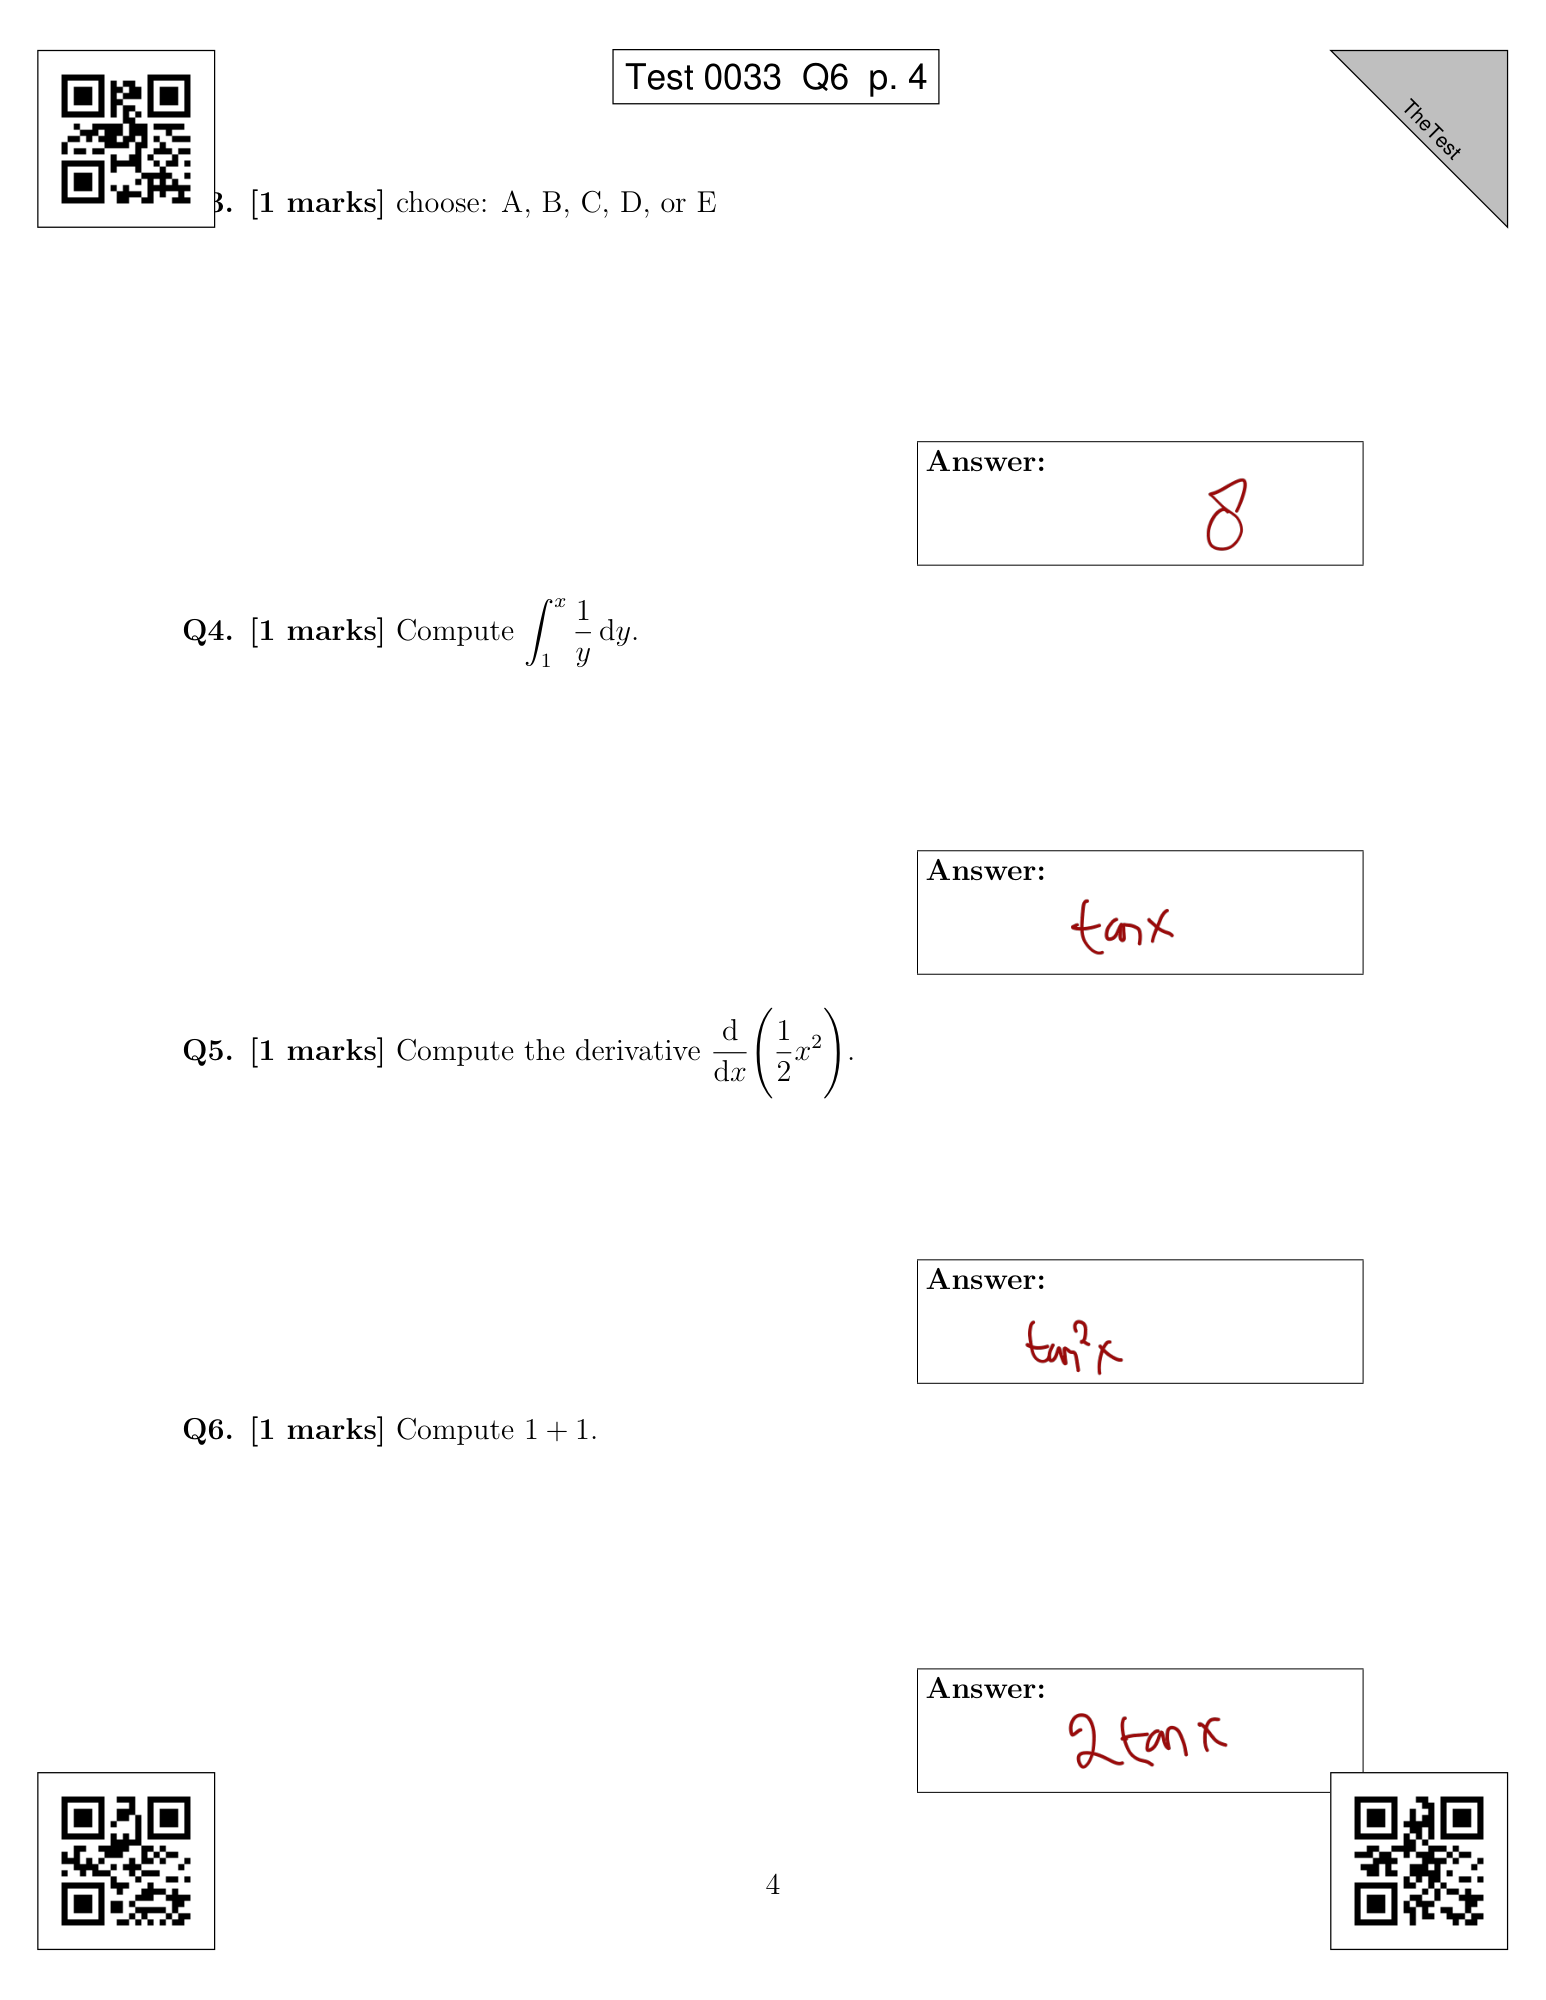 Test 0033 Q6 p. 4
TheTest
3. [1 marks] choose: A, B, C, D, or E
Answer:
8
Q4. [1 marks] Compute ∫₁ˣ 1/y dy.
Answer:
tan x
Q5. [1 marks] Compute the derivative d/dx (1/2 x²).
Answer:
tan² x
Q6. [1 marks] Compute 1 + 1.
Answer:
2 tan x
4